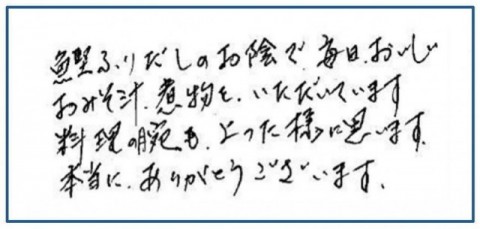 鰹ふりだしのお陰で、毎日、おいしい
おみそ汁、煮物を、いただいています
料理の腕も、上った様に思います。
本当に、ありがとうございます。